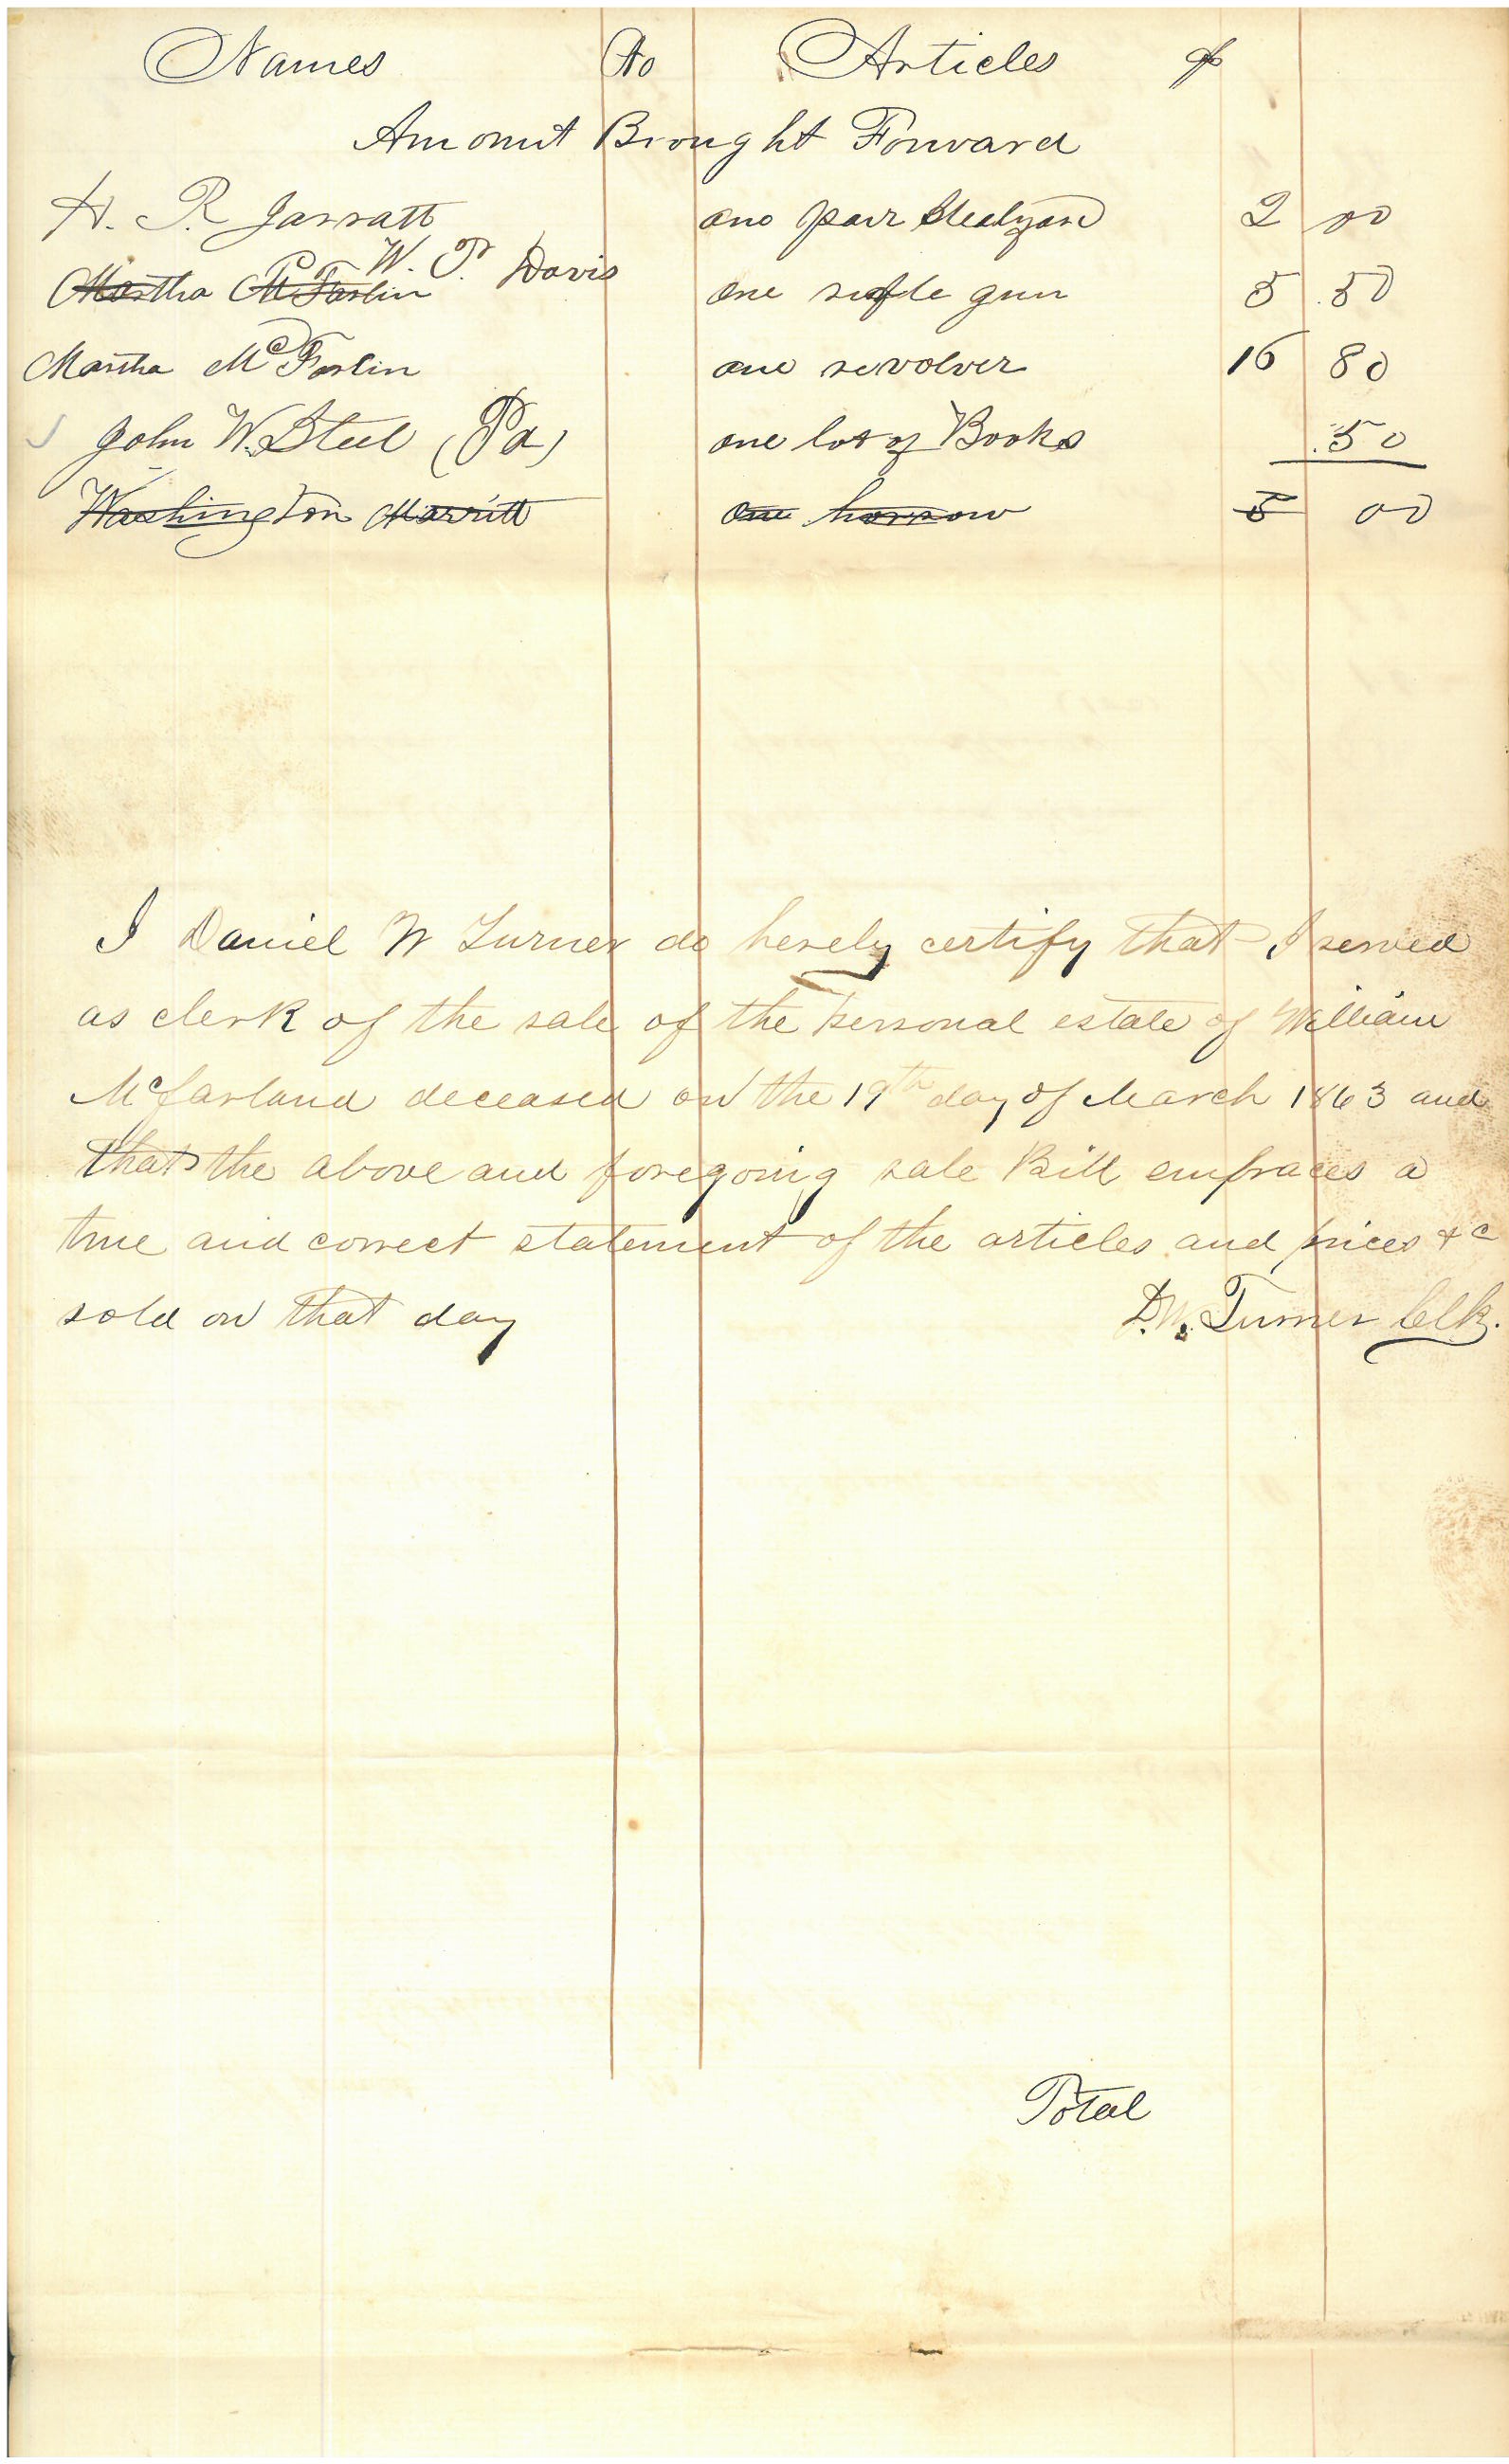 Names No Articles $
Amount Brought Forward
H. R. Jarratt one pair Stealyard 2 00
W. P. Davis
Martha McFarlin one rifle gun 5 .50
Martha McFarlin one revolver 16 80
John W. Steel (Pd) one lot of Books .50
Washington Marritt one horrow 5 00
I Daniel W Turner do herely certify that I served
as clerk of the sale of the personal estate of William
McFarland deceased on the 19th day of March 1863 and
that the above and foregoing sale Bill embraces a
true and correct statement of the articles and prices &c
sold on that day D.W. Turner Clk.
Total